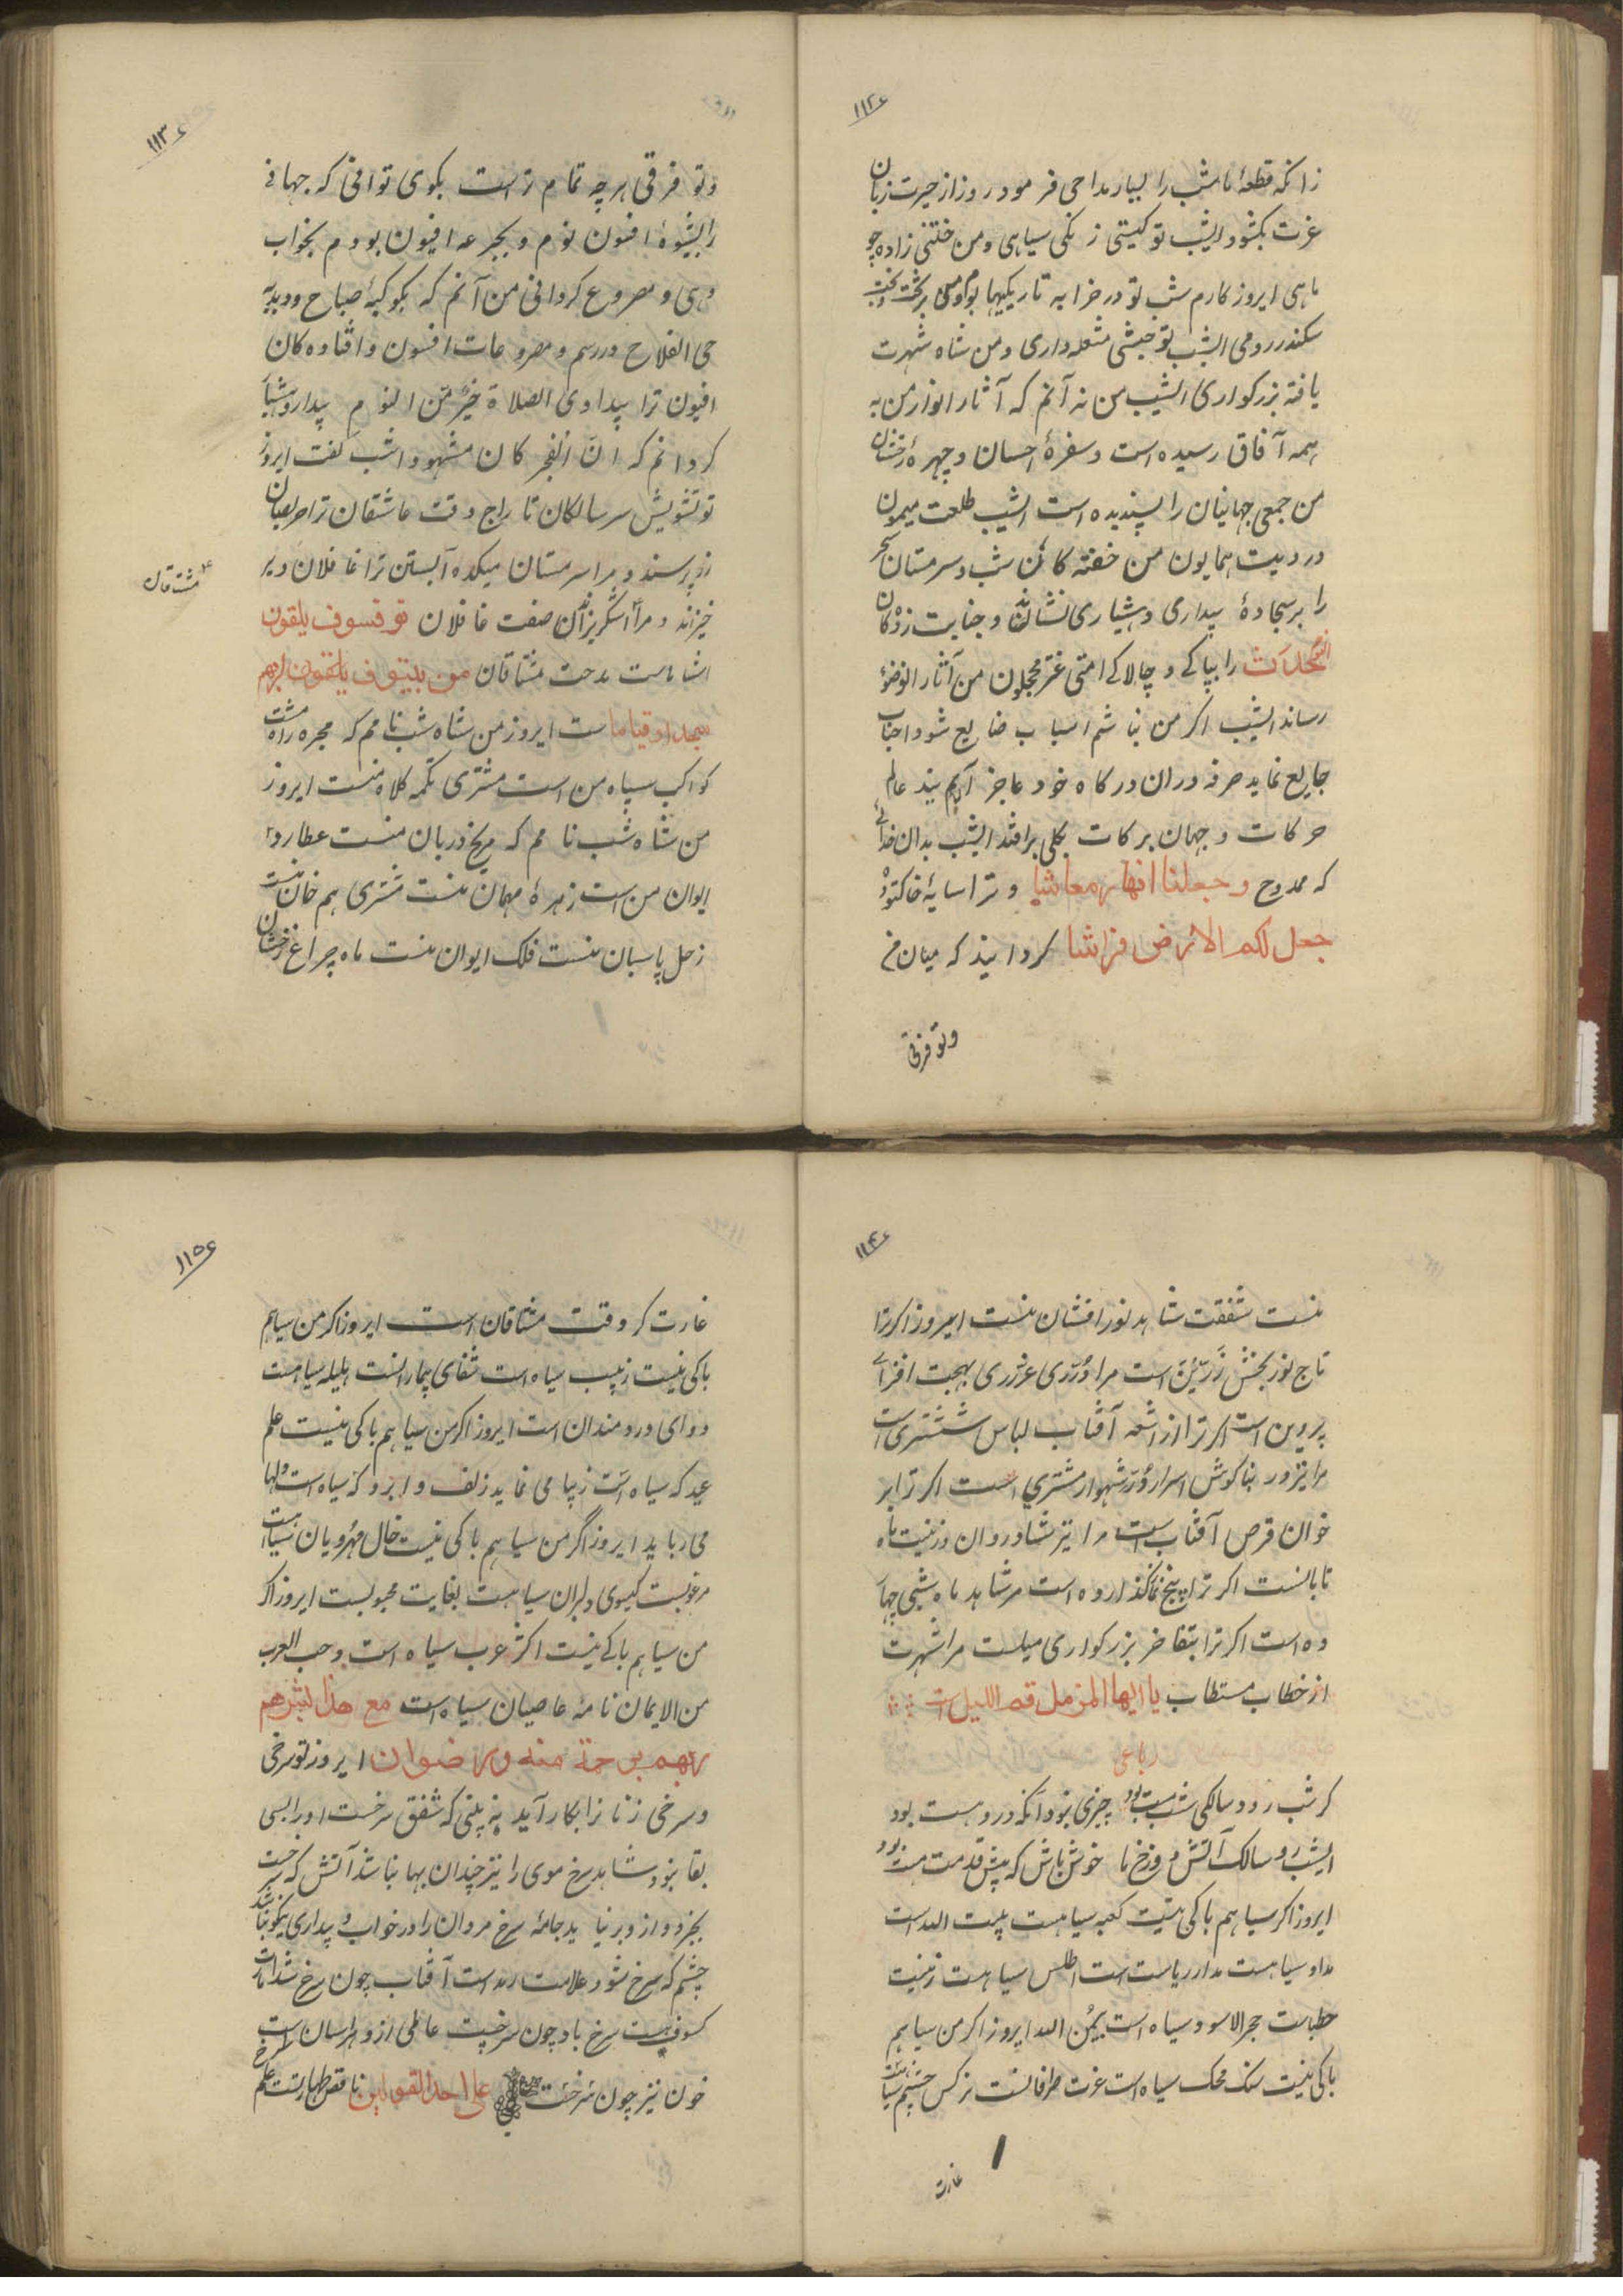 ١١٢
زانکه قطعهٔ نامش را بسیار مداحی فرمود روز از حیرت زبان
عزت بکشود ایشب تو کیستی زنکی سیاهی ومن ختنی زاده چو
ماهی ایروز کارم شب تو در خرابه تاریکیها
سکندر رومی ایشب تو حبشی مشعله داری ومن شاه شهرت
یافته بزرکواری ایشب من نه آنم که آثار انوار من به
همه آفاق رسیده است وسفرهٔ احسان وچهرهٔ رخشان
من جمعی جهانیان را پسندیده است ایشب طلعت میمون
در دیدت همایون من خفته کان شب وسرمستان سحر
را بر سجادهٔ بیداری وهشیاری نشاند وجنایت زدکان
را بپاکی وچالاکی امتی غرّ محجلون من آثار الوضوء
رساند ایشب اکر من نباشم اسباب ضایع شود اجناب
جایع نماید صرفه دران درکاه خود عاجز آیم بیند عالم
حرکات وجهان برکات بکلی برافتد ایشب بدان خدائی
که ممدوح وجعلنا النهار معاشا وترا سایهٔ خاکتود
جعل لکم الارض فراشا کردانید که میان من
وتو فرقی
١١٣
وتو فرقی هرچه تمام تر است بکوی توانی که جهانی
را بشیوهٔ افسون نوم وبجرعه افیون بودم بخواب
دهی ومصروع کردانی من آنم که بکوکبهٔ صباح ودبدبهٔ
حی الفلاح در رسم ومصروعات افسون وافتاده کان
افیون ترا بیداوی الصلاة خیر من النوم بیدار وهشیار
کردانم که انّ الفجر کان مشهودا شب کفت ایروز
تو تشویش سر سالکان تاراج وقت عاشقان ترا حریفان
زر پرسند ومرا سرمستان میکده آبستن ترا غافلان دیر
خیزند ومرا اشکریزان صفت غافلان فسوف یلقون
مشتاقان
اشامت مدحت مشتاقان من یبیتون لربهم
سجدا وقیاما ست ایروز من شاه شب نامم که مجره راه
کواکب سپاه من است مشتری تکمه کلاه منست ایروز
من شاه شب نامم که مریخ دربان منست عطارد
ایوان من است زهرهٔ مهمان منست مشتری هم خان منست
زحل پاسبان منست فلک ایوان منست ماه چراغ رخشان
١١٤
منست شفقت شاهد نور افشان منست ایروز اکر ترا
تاج نور بخش زرّین است مرا درّری غرری بهجت افزای
پروین است اکر ترا از اشعه آفتاب لباس ششتری است
مرا نیز در بناکوش اسرار درّ شهوار مشتری است اکر ترا بر
خوان قرص آفتاب است مرا نیز شادروان وزینت ماه
تابانست اکر ترا پنج نماز کذارده است مرشاهد ماه شبی چهار
ده است اکر ترا بتفاخر بزرکواری میلست مرا شهرت
از خطاب مستطاب یا ایها المزمل قم اللیل است
رباعی
کر شب رود سالکی شب مست بود چیزی نبود آنکه درو هست بود
ایشب رو سالک آتش دوزخ ما خوش باش که پیش قدمت پست بود
ایروز اکر سیاهم باکی نیست کعبه سیاهست بیت الله است
مداد سیاهست مدار ریاست است اطلس سیاهست زینت
خطباست حجر الاسود سیاه است یمین الله ایروز اکر من سیاهم
باکی نیست سنک محک سیاه است عزت طرفانست نرکس چشم سیاهست
غارت
١١٥
غارت کر وقت مشتاقان است ایروز اکر من سیاهم
باکی نیست زبیب سیاه است شفای بیمارانست هلیله سیاهست
دوای دردمندان است ایروز اکر من سیاهم باکی نیست علم
عید که سیاه است زیبا می نماید زلف وابرو که سیاه است دلها
می رباید ایروز اگر من سیاهم باکی نیست خال مهرویان سیاهست
مرغوبست کیسوی دلبران سیاهست بغایت محبوبست ایروز اکر
من سیاهم باکی نیست اکثر عرب سیاه است وحب العرب
من الایمان نامهٔ عاصیان سیاه است مع هذا یبشرهم
ربهم برحمة منه ورضوان ایروز تو سرخی
وسرخی زنانرا بکار آید نه بینی که شفق سرخست اورا بسی
بقا نبود شاهد سرخ موی را نیز چندان بها نباشد آتش که سرخست
بجز دود ازو بر نیاید جامهٔ سرخ مردان را در خواب وبیداری نیکو نباشد
چشم که سرخ شود علامت رمد است آفتاب چون سرخ شد امارت
کسوفیست سرخ باد چون سرخیست عاطی ازو هراسان است
خون نیز چون سرخست علی احد القولین ناقض طهارتست علم